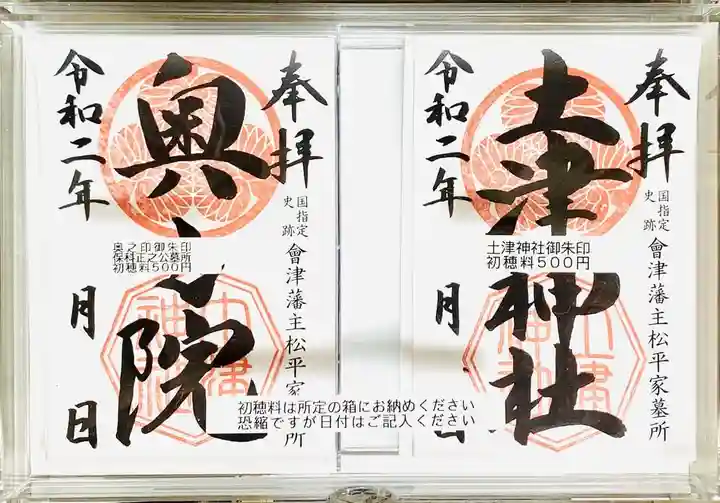 奉拝
土津神社
国指定
史跡
會津藩主松平家墓所
令和二年
月
土津神社御朱印
初穂料500円
奉拝
奥
院
国指定
史跡
會津藩主松平家
所
令和二年
月
日
奥之印御朱印
保科正之公墓所
初穂料500円
初穂料は所定の箱にお納めください
恐縮ですが日付はご記入ください